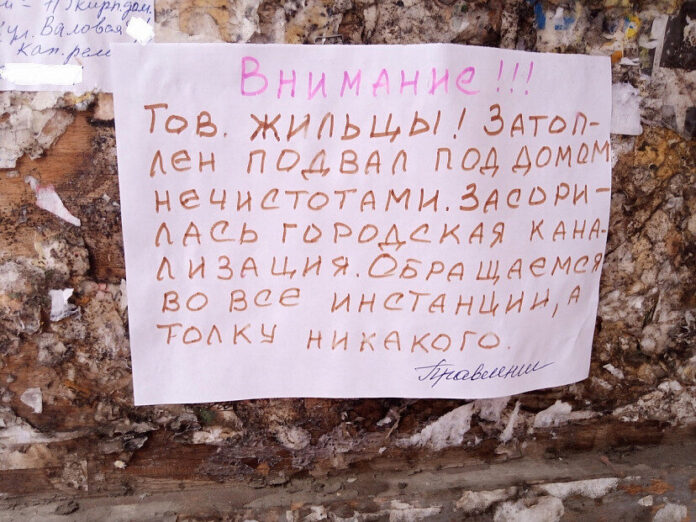 кирп. дом.
ул. Валовая
кап. рем
Внимание!!!
Тов. жильцы! Затоп-
лен подвал под домом
нечистотами. Засори-
лась городская кана-
лизация. Обращаемся
во все инстанции, а
толку никакого.
Правление